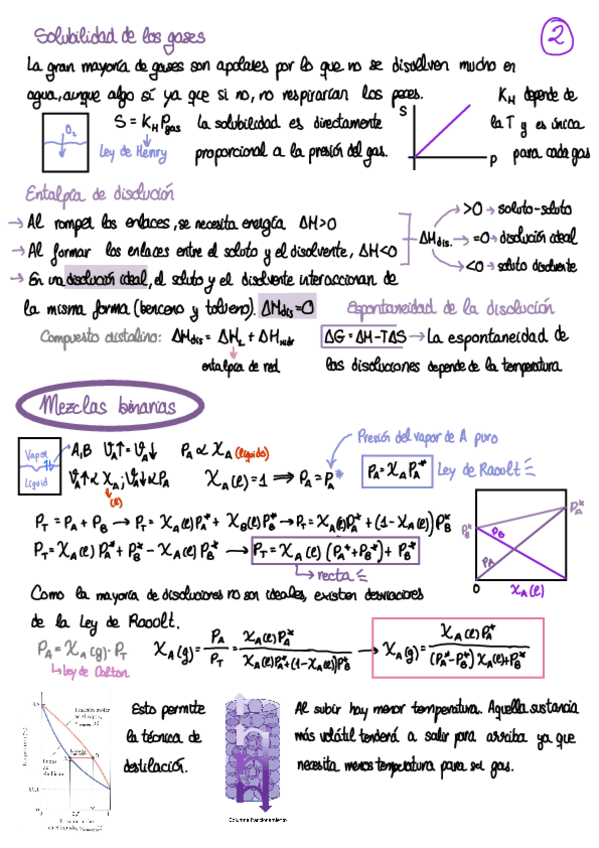 Solubilidad de los gases
2
La gran mayoría de gases son apolares por lo que no se disuelven mucho en
agua, aunque algo sí ya que si no, no respirarían los peces.
O₂
S = K_H P_gas
Ley de Henry
La solubilidad es directamente
proporcional a la presión del gas.
S
P
K_H depende de
la T y es única
para cada gas
Entalpía de disolución
→ Al romper los enlaces, se necesita energía ΔH>0
→ Al formar los enlaces entre el soluto y el disolvente, ΔH<0
→ En una disolución ideal, el soluto y el disolvente interaccionan de
la misma forma (benceno y tolueno). ΔH_dis=0
ΔH_dis.
>0 → soluto-soluto
=0 → disolución ideal
<0 → soluto disolvente
Compuesto cristalino: ΔH_dis = ΔH_L + ΔH_hidr
entalpía de red
Espontaneidad de la disolución
ΔG = ΔH-TΔS → La espontaneidad de
las disoluciones depende de la temperatura
Mezclas binarias
Vapor
Líquido
A,B
P_A ∝ X_A (líquido)
X_A(l)=1 ⟹ P_A=P_A*
Presión del vapor de A puro
P_A = X_A P_A*
Ley de Raoult
P_T = P_A + P_B → P_T = X_A(l)P_A* + X_B(l)P_B* → P_T = X_A(l)P_A* + (1-X_A(l))P_B*
P_T = X_A(l) P_A* + P_B* - X_A(l) P_B* → P_T = X_A(l) (P_A*+P_B*) + P_B*
recta
P_B*
P_A*
P_B
P_A
0
X_A(l)
Como la mayoría de disoluciones no son ideales, existen desviaciones
de la Ley de Raoult.
P_A = X_A(g)·P_T
Ley de Dalton
X_A(g) = P_A/P_T = X_A(l)P_A*/X_A(l)P_A*+(1-X_A(l))P_B* → X_A(g) = X_A(l)P_A*/(P_A*-P_B*)X_A(l)+P_B*
Esto permite
la técnica de
destilación.
Columna fraccionamiento
Al subir hay menor temperatura. Aquella sustancia
más volátil tenderá a salir para arriba ya que
necesita menos temperatura para ser gas.